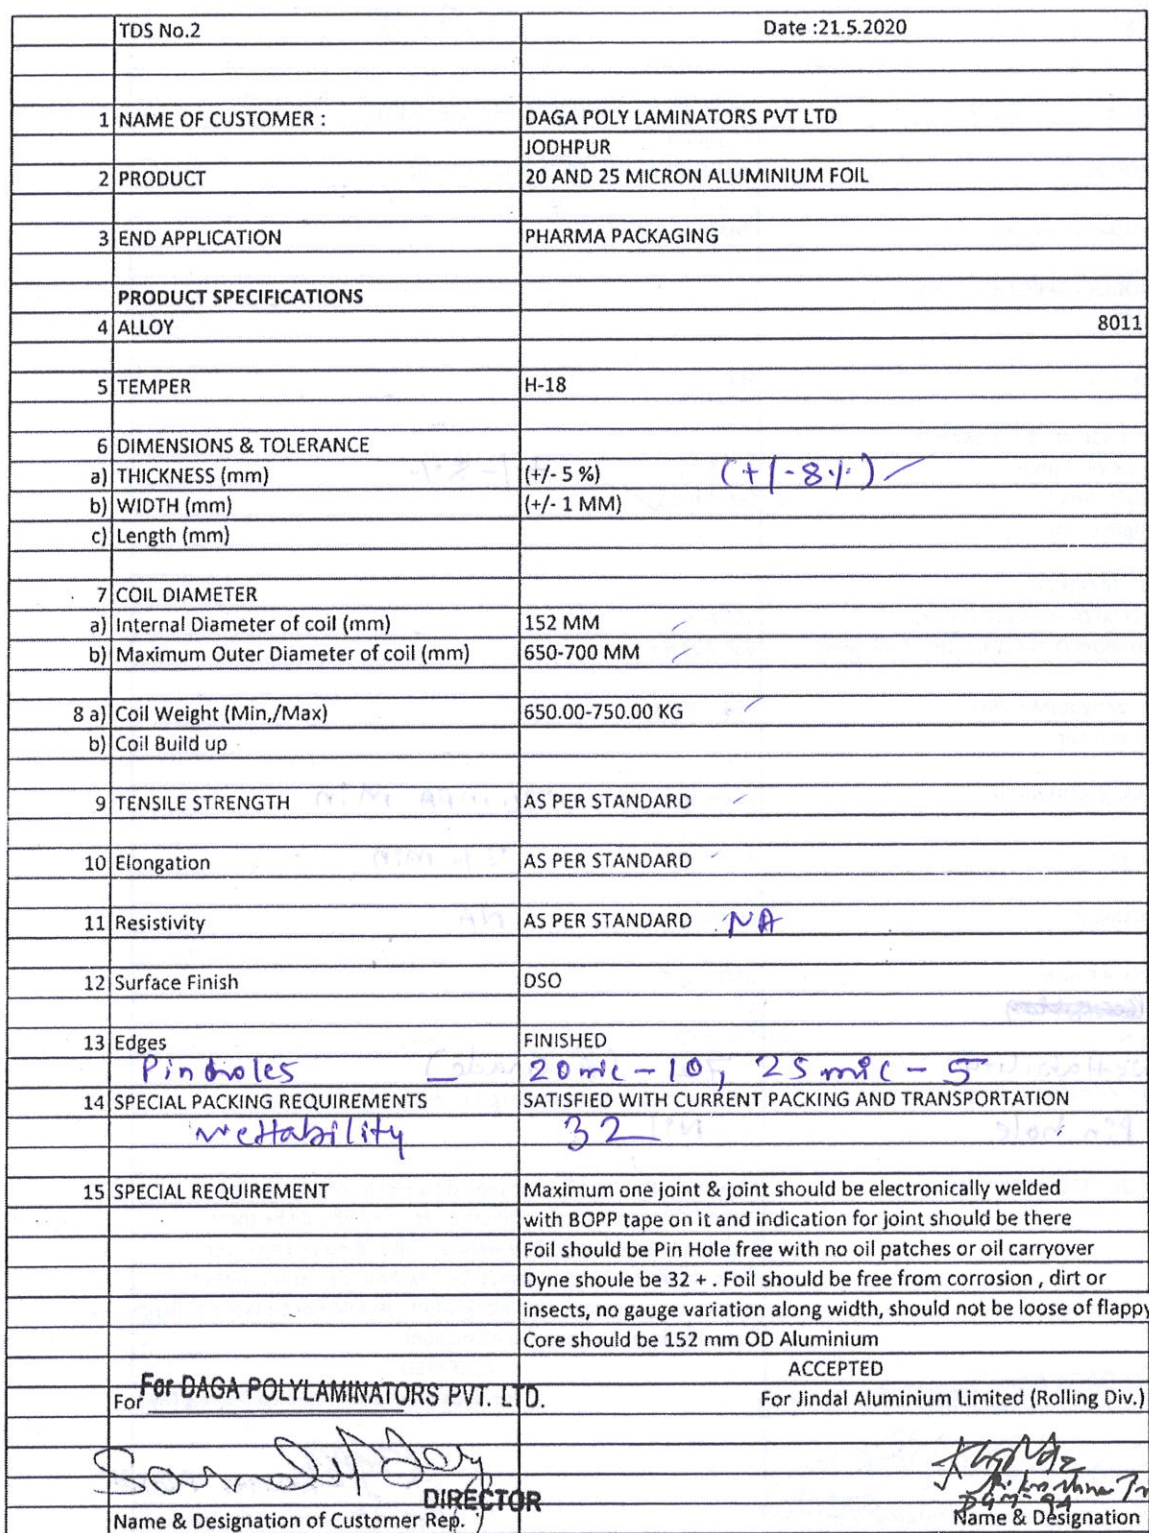 TDS No.2 Date :21.5.2020
1 NAME OF CUSTOMER : DAGA POLY LAMINATORS PVT LTD
JODHPUR
2 PRODUCT 20 AND 25 MICRON ALUMINIUM FOIL
3 END APPLICATION PHARMA PACKAGING
PRODUCT SPECIFICATIONS
4 ALLOY 8011
5 TEMPER H-18
6 DIMENSIONS & TOLERANCE
a) THICKNESS (mm) (+/- 5 %) (+/-8%)
b) WIDTH (mm) (+/- 1 MM)
c) Length (mm)
7 COIL DIAMETER
a) Internal Diameter of coil (mm) 152 MM
b) Maximum Outer Diameter of coil (mm) 650-700 MM
8 a) Coil Weight (Min,/Max) 650.00-750.00 KG
b) Coil Build up
9 TENSILE STRENGTH AS PER STANDARD
10 Elongation AS PER STANDARD
11 Resistivity AS PER STANDARD NA
12 Surface Finish DSO
13 Edges FINISHED
Pinholes — 20 mic - 10, 25 mic - 5
14 SPECIAL PACKING REQUIREMENTS SATISFIED WITH CURRENT PACKING AND TRANSPORTATION
Wettability 32
15 SPECIAL REQUIREMENT Maximum one joint & joint should be electronically welded
with BOPP tape on it and indication for joint should be there
Foil should be Pin Hole free with no oil patches or oil carryover
Dyne shoule be 32 + . Foil should be free from corrosion , dirt or
insects, no gauge variation along width, should not be loose of flappy
Core should be 152 mm OD Aluminium
ACCEPTED
For For DAGA POLYLAMINATORS PVT. LTD. For Jindal Aluminium Limited (Rolling Div.)
DIRECTOR DGM-QA
Name & Designation of Customer Rep. Name & Designation